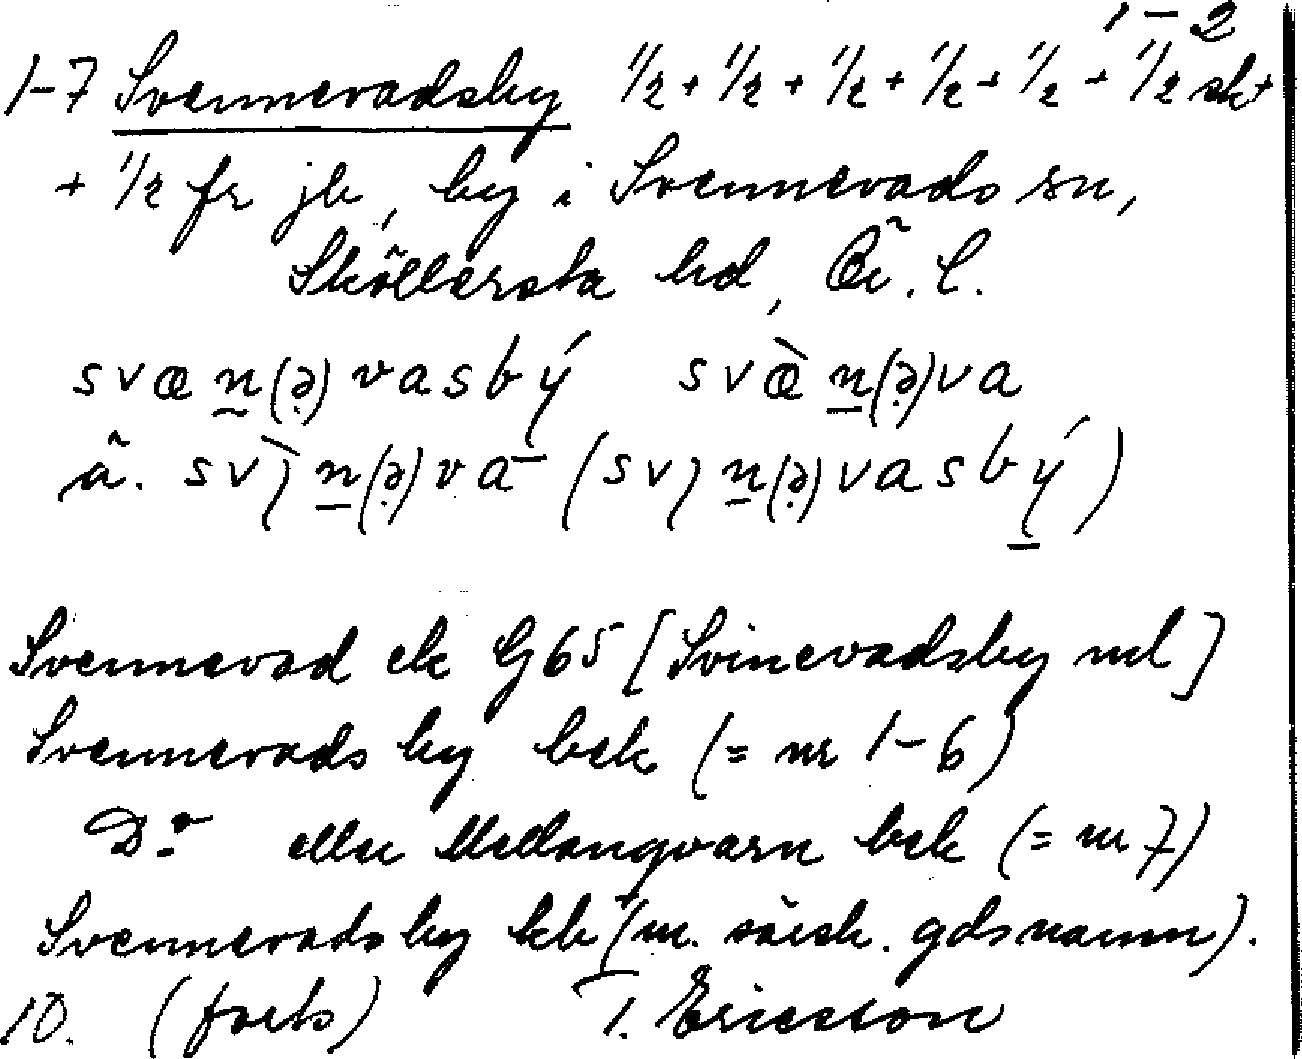 1-2
1-7 Svennevadsby 1/2 + 1/2 + 1/2 + 1/2 + 1/2 + 1/2 sk +
+ 1/2 fr jb, by i Svennevads sn,
Sköllersta hd, Ör. l.
svænٜ(ə)vasbý svæ̀n(ə)va
ä. sv n(ə)va (sv n(ə)vasbý)
Svennevad ek G65 [Svinevadsby ml]
Svennevads by bek (= nr 1-6)
Do eller Mellanqvarn bek (= nr 7)
Svennevadsby kb (m. särsk. gdsnamn).
10. (forts) T. Ericsson